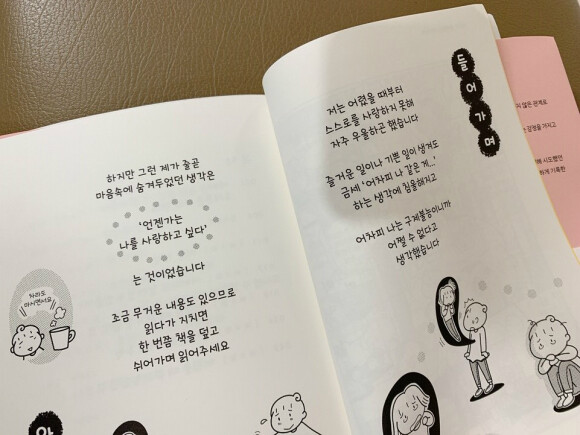 들어가며
저는 어렸을 때부터
스스로를 사랑하지 못해
자주 우울하곤 했습니다
즐거운 일이나 기쁜 일이 생겨도
금세 '어차피 나 같은 게…'
하는 생각에 침울해지고
어차피 나는 구제불능이니까
어쩔 수 없다고
생각했습니다
하지만 그런 제가 줄곧
마음속에 숨겨두었던 생각은
'언젠가는
나를 사랑하고 싶다'
는 것이었습니다
조금 무거운 내용도 있으므로
읽다가 지치면
한 번쯤 책을 덮고
쉬어가며 읽어주세요
차라도
마시면서요
않은
감정을 가지고
시도했던
하게 기록한